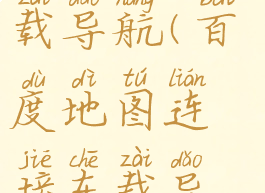 zài dǎo háng bǎi
载导航(百
dù dì tú lián
度地图连
jiē chē zài dǎo
接车载导